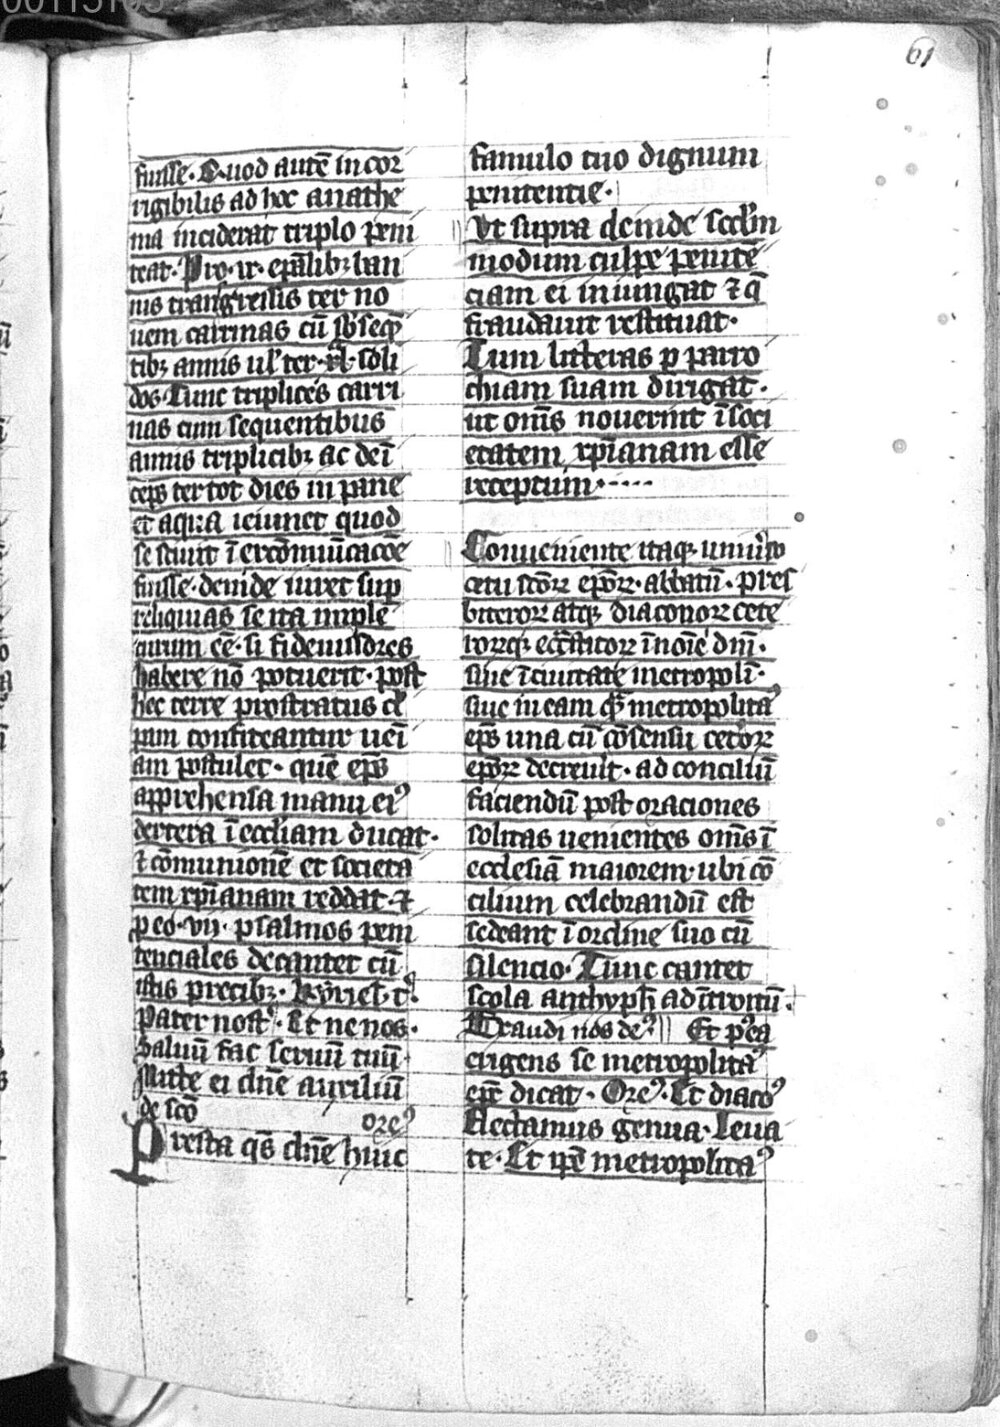 00115103
61
fuisse. Quod autē in cor
rigibilis ad hoc anathe
ma inciderat triplo peni
teat. Pro .ix. ep̄alibꝫ ban
nis transgressis ter no
uem carrinas cū sb̓seq̄
tibꝫ annis ul̓ ter soli
dos. Tunc triplices carri
nas cum sequentibus
annis triplicibꝫ ac deī
ceps ter tot dies in pane
et aqua ieiunet quod
se sciuit ī excōmūicacōe
fuisse. deinde iuret sup
reliquias se ita imple
turum eē. si fideiussores
habere nō potuerit. post
hec terre prostratus cl̓
pam confiteantur uenī
am postulet. quē ep̄s
apprehensa manu ei⁹
dextera ī eccl̓iam ducat.
⁊ cōmunionē et societa
tem xp̄ianam reddat. ⁊
ꝑ eo .vii. psalmos peni
tenciales decantet cū
istis precibꝫ. Kyriel. c̓.
Pater nost̓. Et ne nos.
Saluū fac seruū tuū.
Mitte ei dn̄e auxiliū
de sc̄o ore⁹
Presta q̄s dn̄e huic
famulo tuo dignum
penitentie.
Vt supra deinde sccd̓m
modum culpe penitē
ciam ei iniungat ⁊ q̄
fraudauit restituat.
Tum litteras ꝑ parro
chiam suam dirigat.
ut om̄s nouerint ī soci
etatem xp̄ianam esse
receptum.
Conueniente itaqꝫ uniu̓so
cetu sc̄oꝝ ep̄oꝝ. abbatū. pres
biteroꝝ atqꝫ diaconoꝝ cete
roꝝqꝫ ī noīe dn̄i.
siue ī ciuitate metropolī.
siue in eam q̄ metropolita⁹
ep̄s una cū cōsensu cet̓oꝝ
ep̄oꝝ decreuit. ad conciliū
faciendū post oraciones
solitas uenientes om̄s ī
ecclesiā maiorem ubi cō
cilium celebrandū est
sedeant ī ordine suo cū
silencio. Tunc cantet
scola anthyph̄ ad ītroitū.
Exaudi nos de⁹. Et p⁹ea
erigens se metropolita⁹
ep̄c dicat. Ore⁹. Et diaco⁹
Flectamus genua. Leua
te. Et ip̄e metropolita⁹